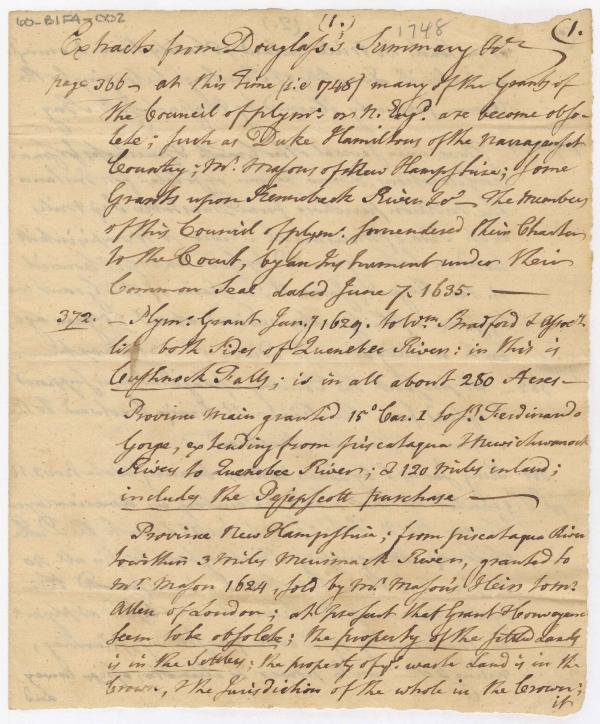 60-B1FA-0002
(1.)
1748
(1.
Extracts from Douglass's Summary &ca.
page 366 - at this time (i.e 1748) many of the Grants of
the Council of plymo. or N. Engd. are become obso-
lete; such as Duke Hamiltons of the Narraganset
Country; Mr. Masons of New Hampshire; some
Grants upon Kennebeck River &ca - The members
of this Council of plymo. surrendered their Charter
to the Court, by an Instrument under their
Common Seal dated June 7. 1635. —
372. - Plymo. Grant Jany 1629. to Wm. Bradford &
lie both sides of Quenebec River: in this is
Cushnock Falls; is in all about 280 Acres -
Province Main granted 15o Car. 1 to Sr. Ferdinando
Gorge, extending from piscataqua & Newichwanock
Rivers to Quenebec River; & 120 miles inland;
includes the Pejepscott purchase —
Province New Hampshire; from piscataqua River
to within 3 miles Merrimack River, granted to
Mr. Mason 1624, sold by Mr. Mason's Heirs to Mr.
Allen of London; at present that Grant & Conveyance
seem to be obsolete; the property of the settled Lands
is in the Settlers; the property of ye. waste Land is in the
Crown, & the Jurisdiction of the whole in the Crown;
it